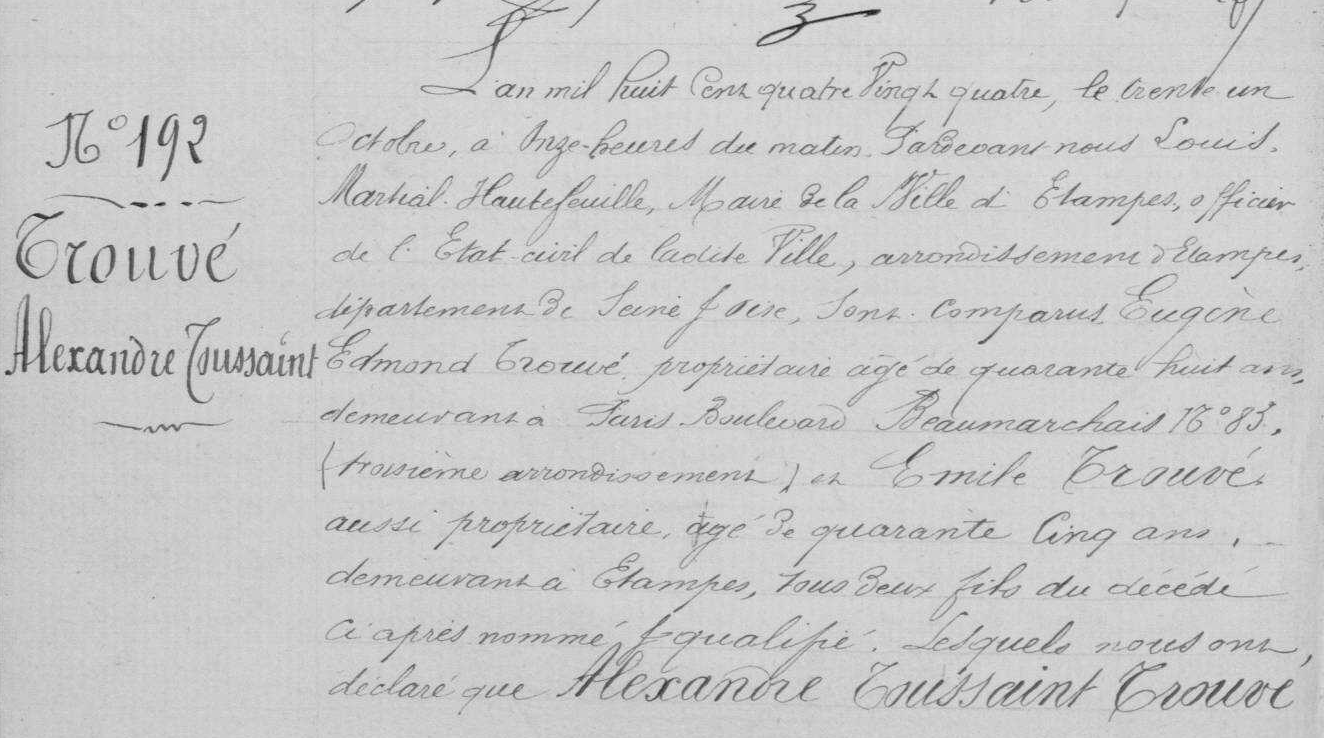 N° 192
Trouvé
Alexandre Toussaint
L'an mil huit Cent quatre Vingt quatre, le trente un
Octobre, à Onze heures du matin. Pardevant nous Louis
Martial Hautefeuille, Maire de la Ville d'Etampes, officier
de l'Etat-civil de ladite Ville, arrondissement d'Etampes,
département de Seine & Oise, Sont Comparus Eugène
Edmond Trouvé propriétaire âgé de quarante huit ans,
demeurant à Paris Boulevard Beaumarchais N° 83,
(troisième arrondissement) et Emile Trouvé
aussi propriétaire, âgé de quarante Cinq ans,
demeurant à Etampes, tous deux fils du décédé
Ci après nommé & qualifié. Lesquels nous ont
déclaré que Alexandre Toussaint Trouvé